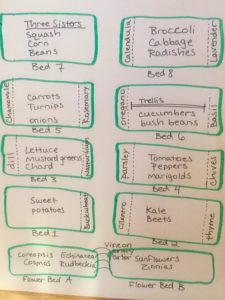 Three Sisters
Squash
Corn
Beans
Bed 7
Calendula
Broccoli
Cabbage
Radishes
Lavender
Bed 8
Chamomile
Carrots
Turnips
onions
Rosemary
Bed 5
oregano
Trellis
cucumbers
bush beans
Basil
Bed 6
dill
Lettuce
mustard greens
Chard
Nasturtium
Bed 3
Parsley
Tomatoes
Peppers
marigolds
Chives
Bed 4
Sweet
potatoes
Buckwheat
Bed 1
Cilantro
Kale
Beets
thyme
Bed 2
Coreopsis Echinacea
Cosmos Rudbeckia
Flower Bed A
Vine on
arbor
Sunflowers
Zinnias
Flower Bed B